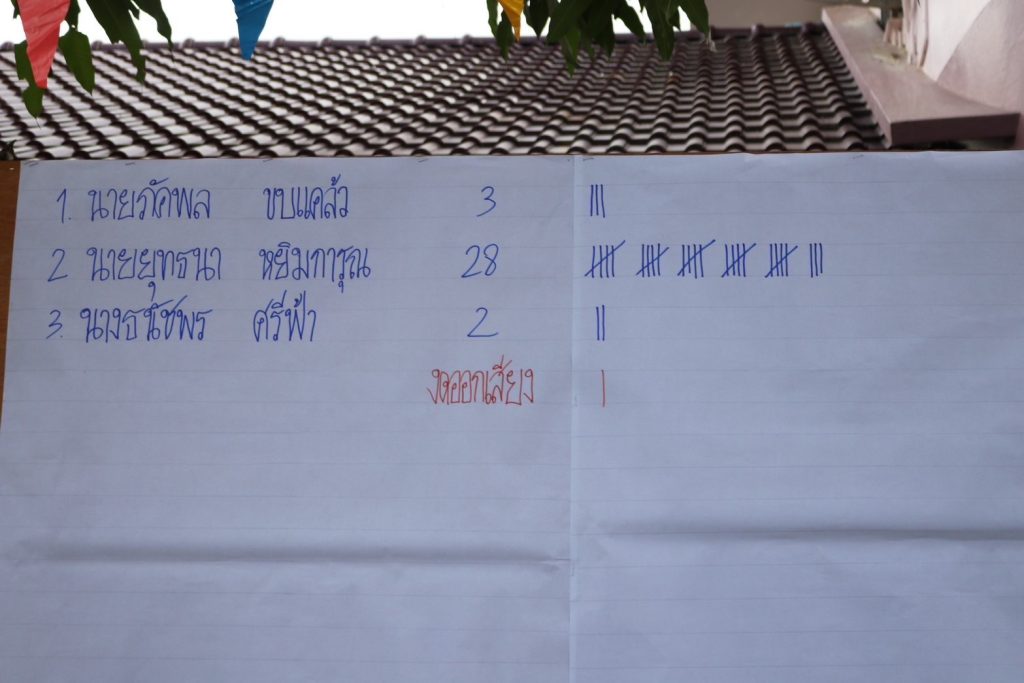 1. นายภัคพล ขบแคล้ว 3 |||
2 นายยุทธนา หยิมการุณ 28 |||| |||| |||| |||| |||| |||
3. นางธนัชพร ศรีฟ้า 2 ||
งดออกเสียง |